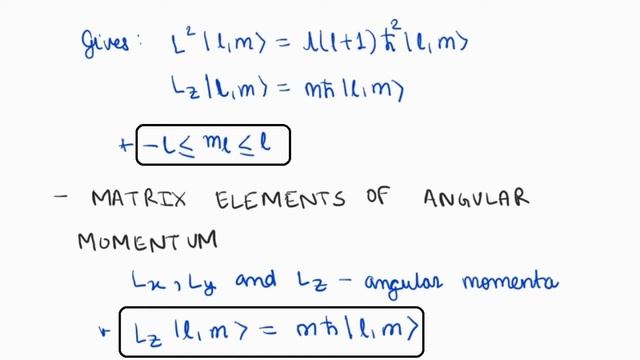 Gives: L² |l,m⟩ = l(l+1)ħ² |l,m⟩
Lz |l,m⟩ = mħ |l,m⟩
+ -l ≤ ml ≤ l
- MATRIX ELEMENTS OF ANGULAR
MOMENTUM
Lx, Ly and Lz - angular momenta
+ Lz |l,m⟩ = mħ |l,m⟩